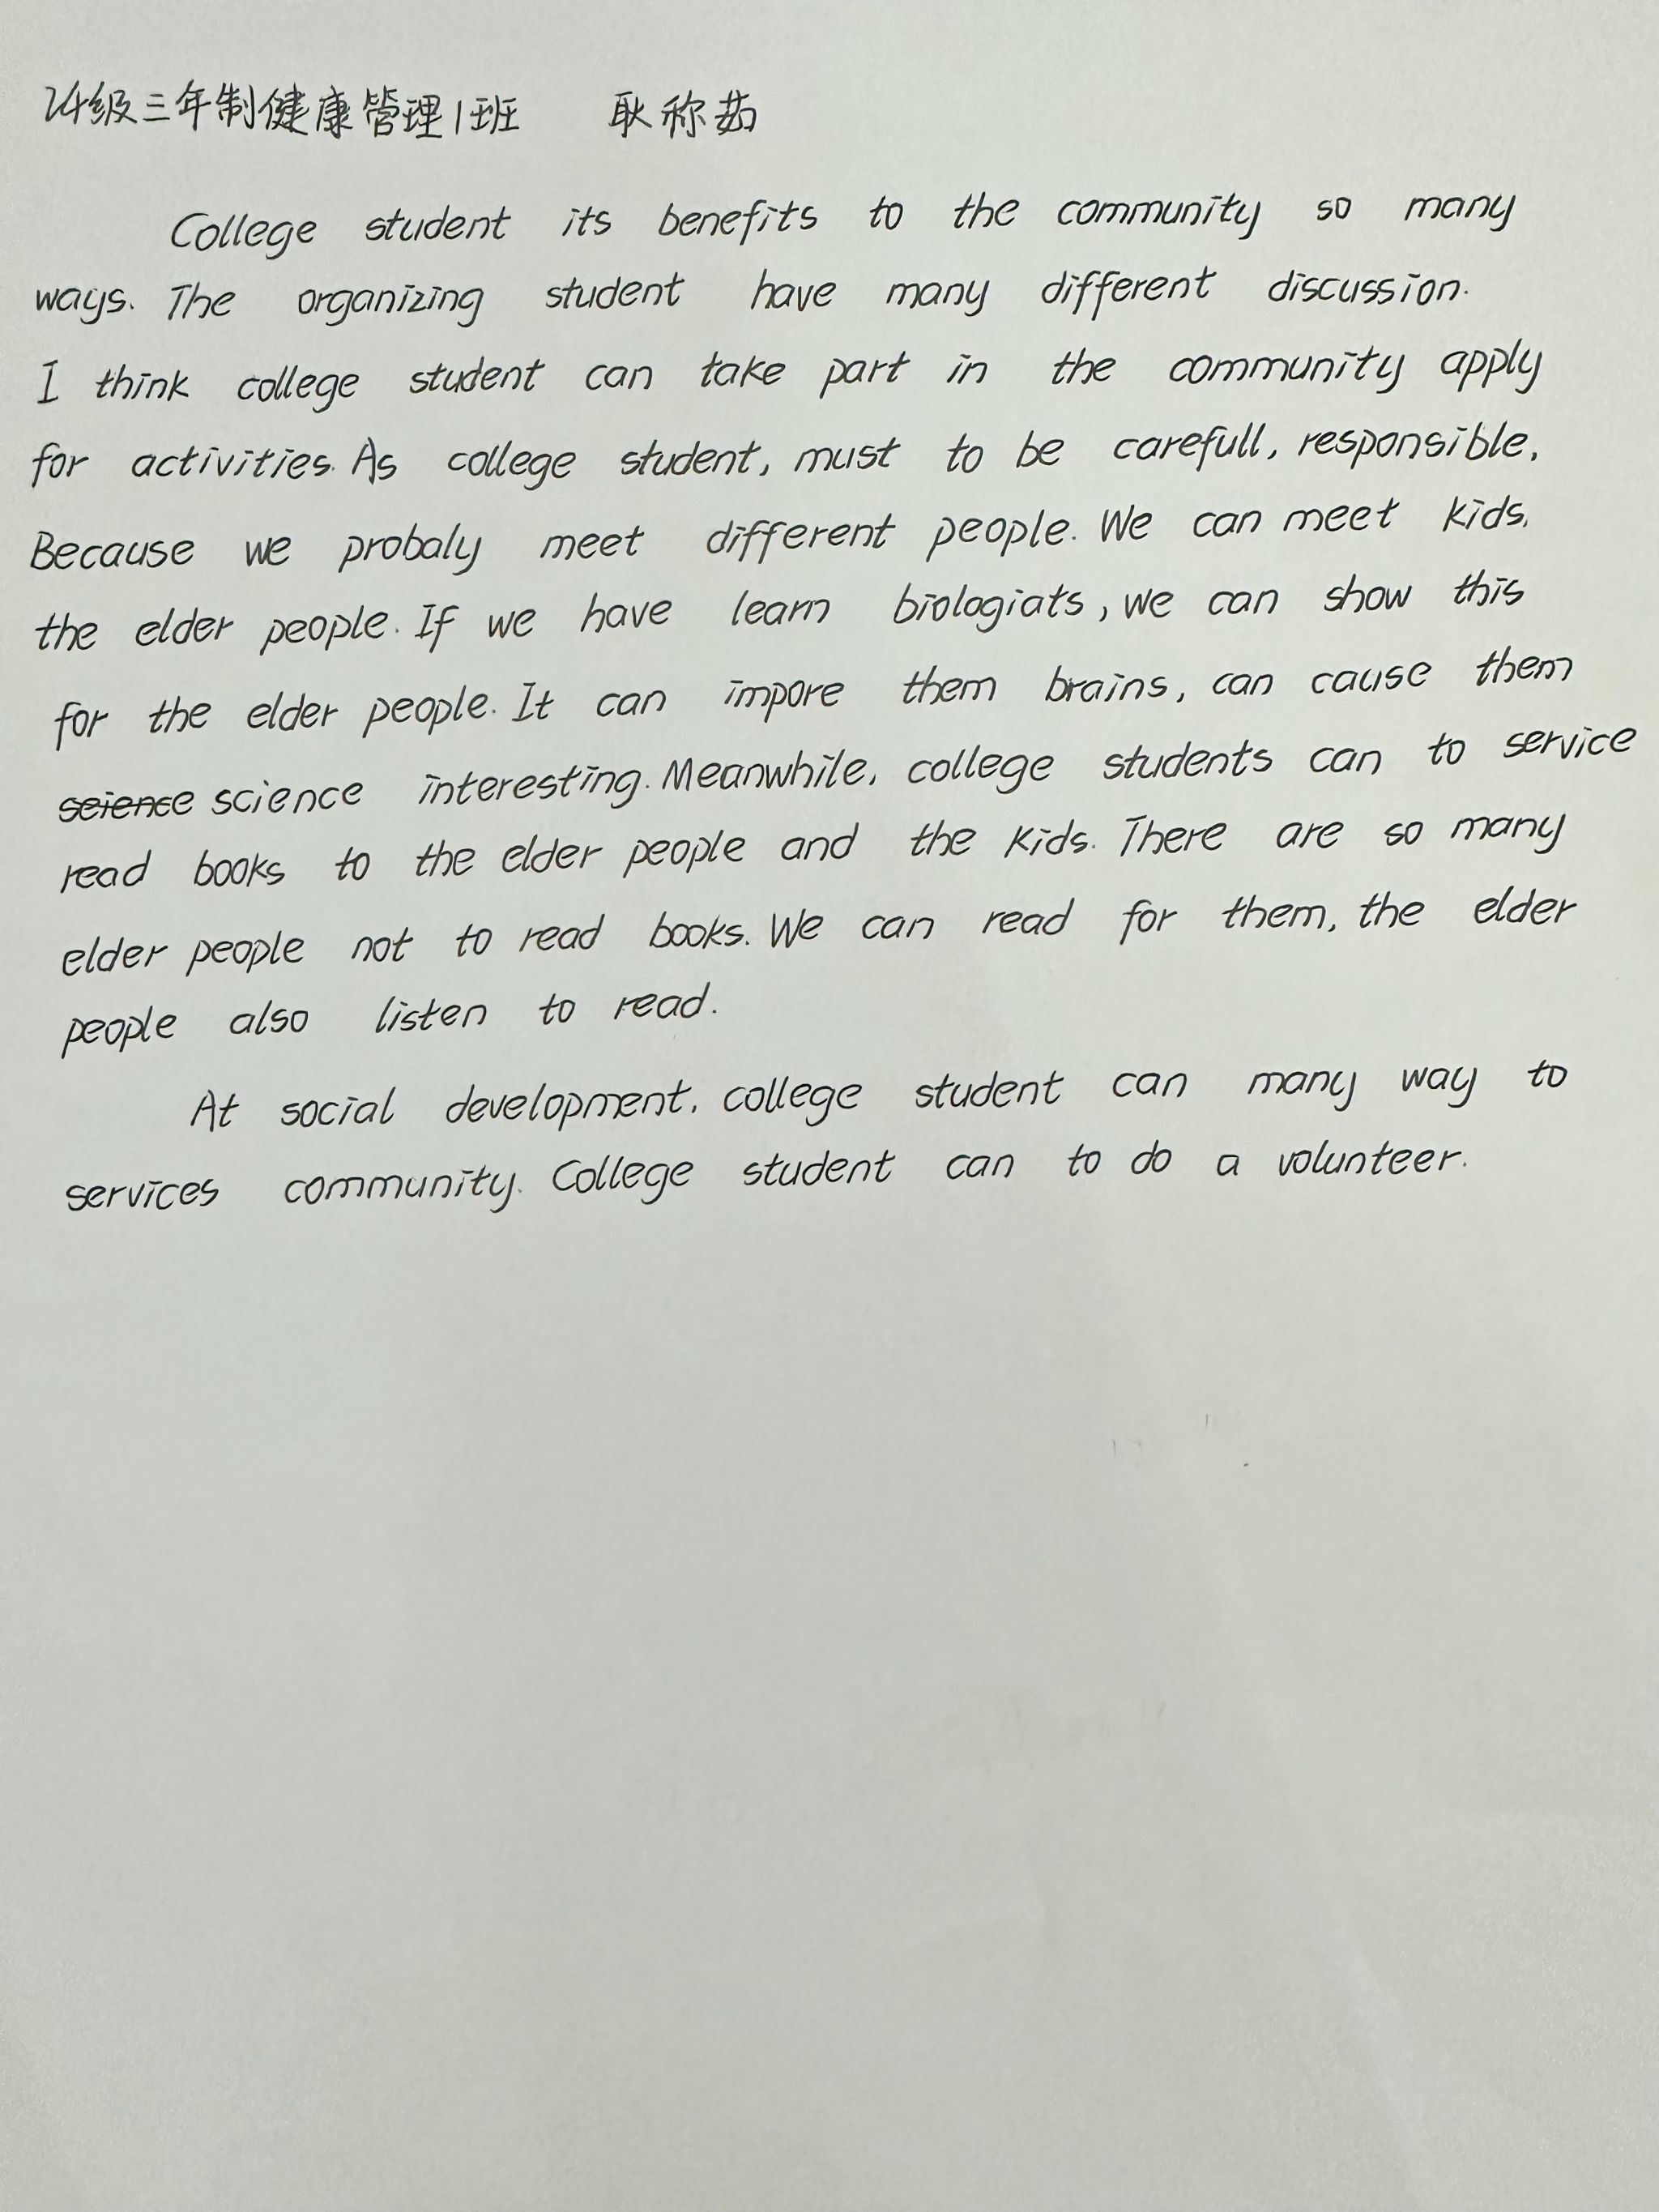 24级三年制健康管理1班 耿称茹
College student its benefits to the community so many
ways. The organizing student have many different discussion.
I think college student can take part in the community apply
for activities. As college student, must to be carefull, responsible,
Because we probaly meet different people. We can meet kids,
the elder people. If we have learn biologiats, we can show this
for the elder people. It can impore them brains, can cause them
seience science interesting. Meanwhile, college students can to service
read books to the elder people and the kids. There are so many
elder people not to read books. We can read for them, the elder
people also listen to read.
At social development, college student can many way to
services community. College student can to do a volunteer.